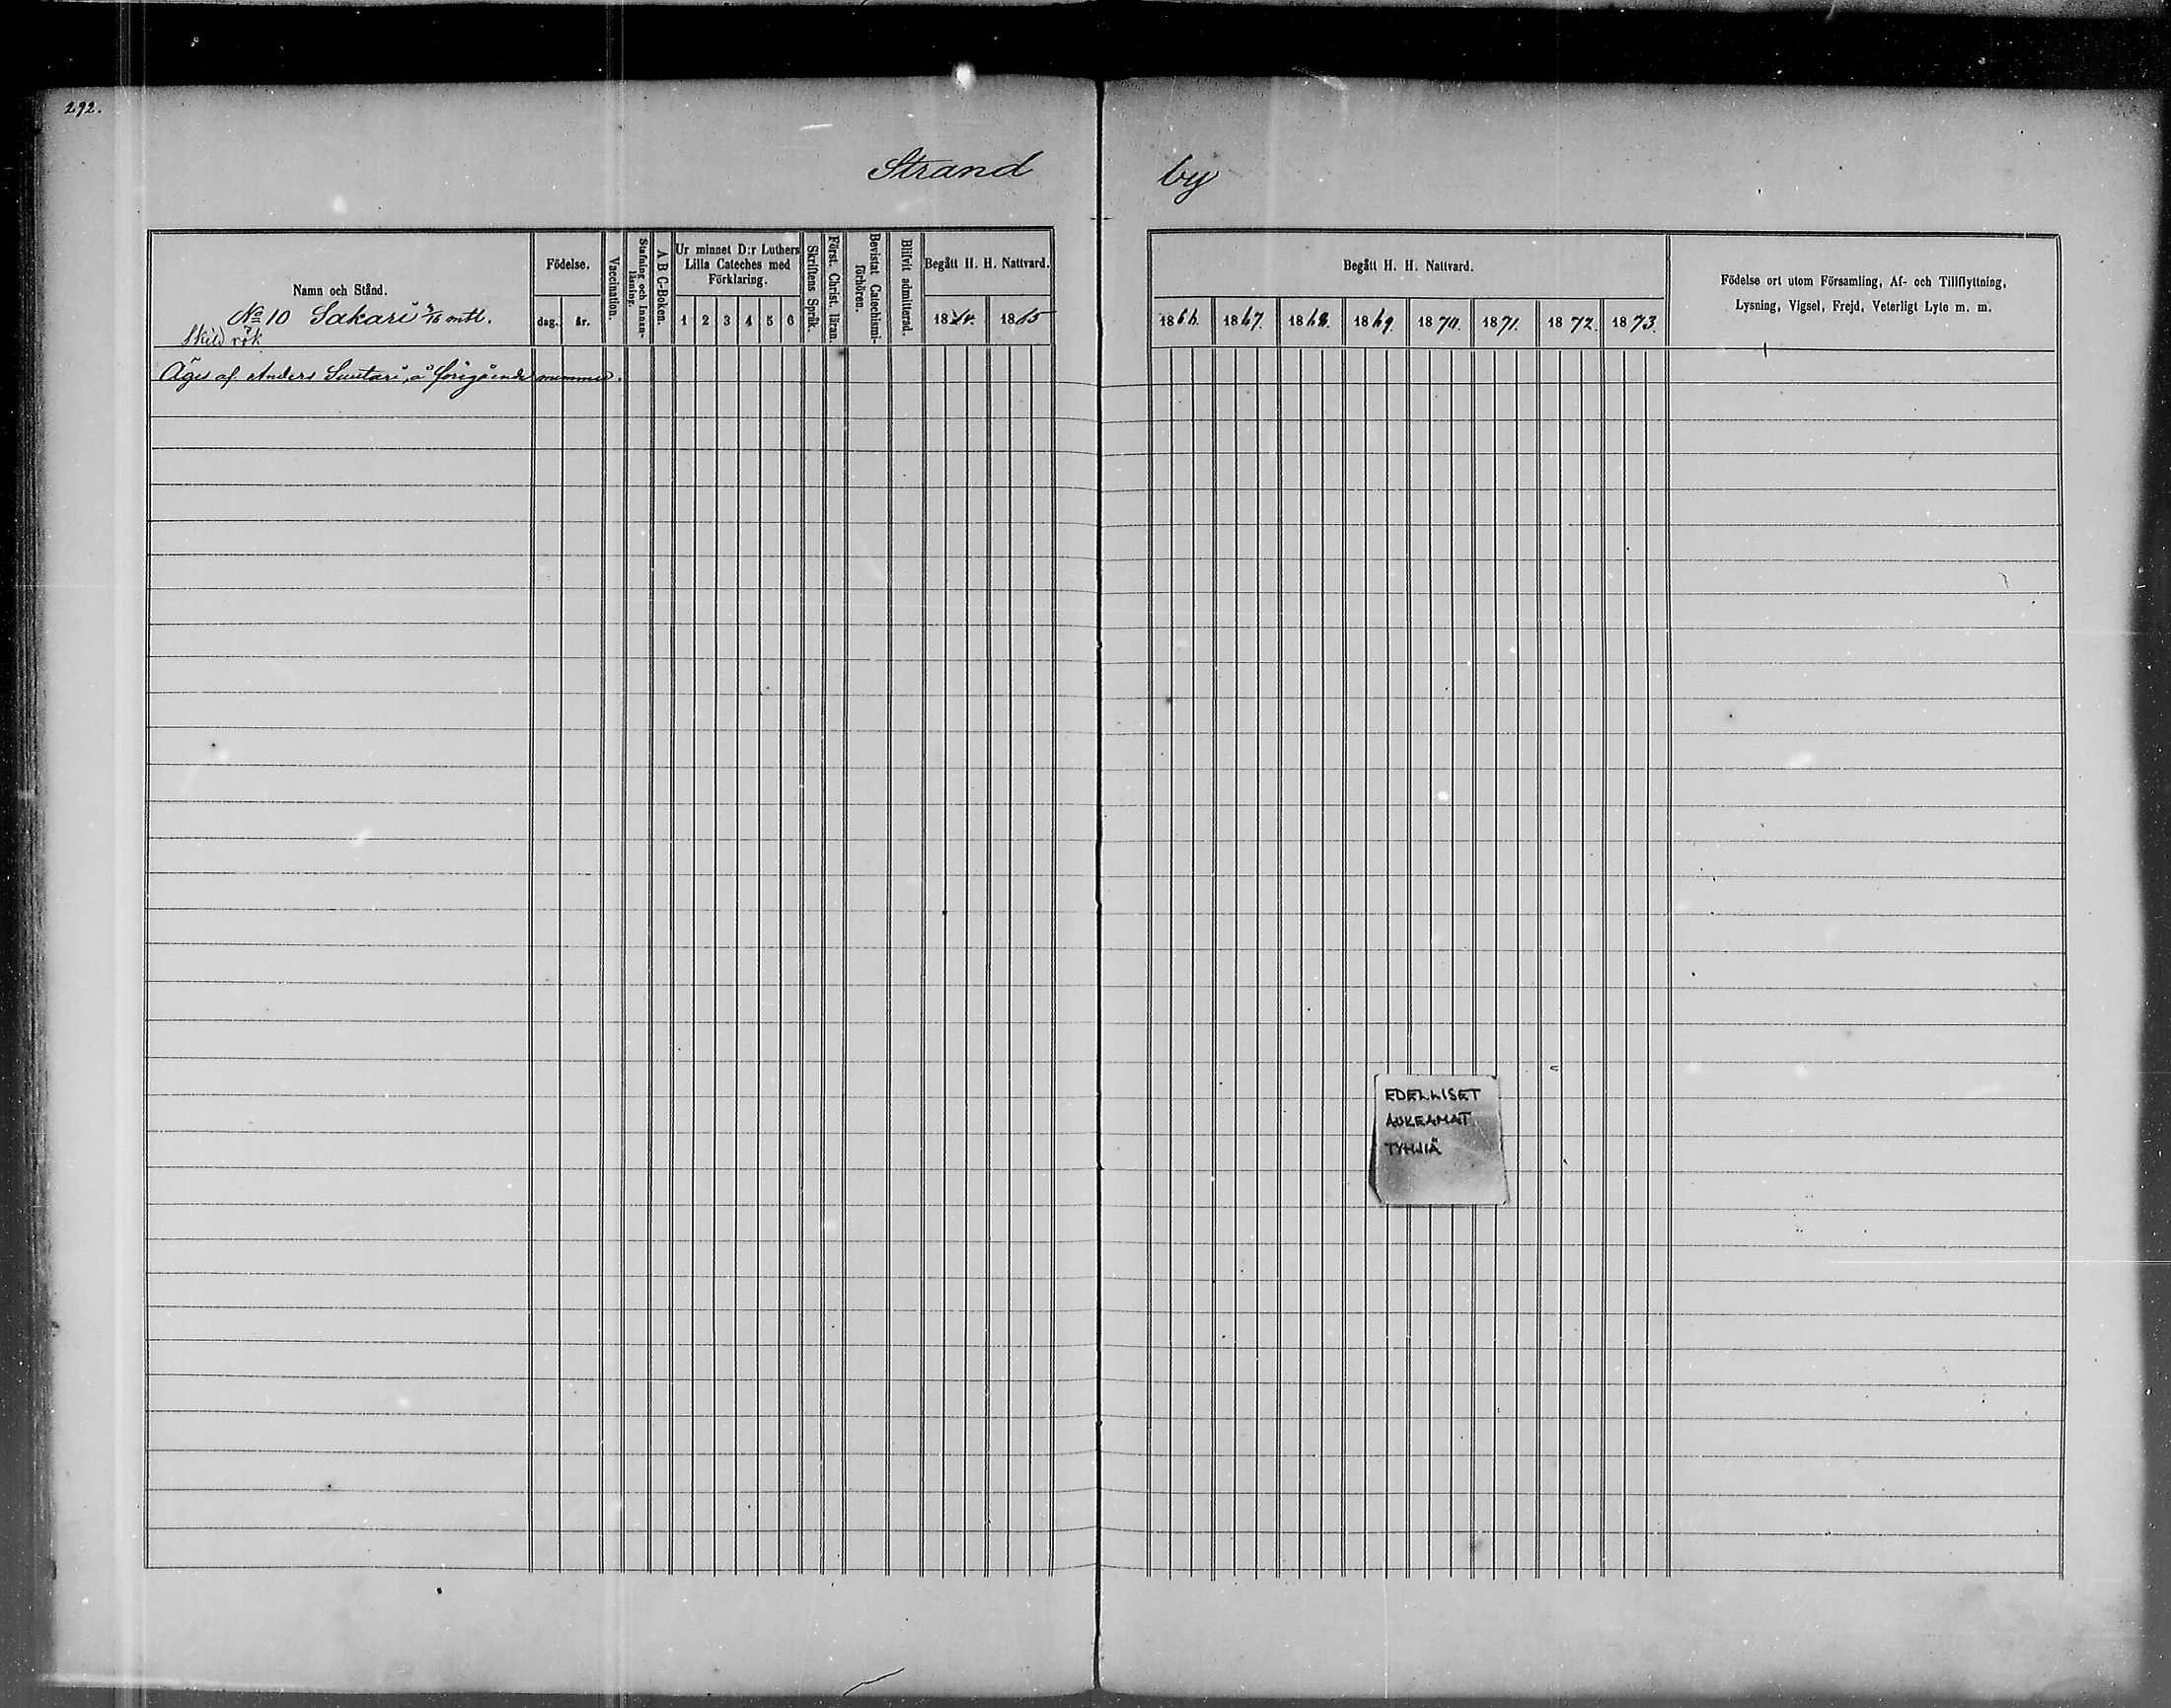 292.
Strand by
Namn och Stånd.
No 10 Sakari mtl.
Skild rök
Födelse.
dag. år.
Vaccination.
Stafning och Innan-
läsning.
A B C-Boken.
Ur minnet D:r Luthers
Lilla Cateches med
Förklaring.
1 2 3 4 5 6
Skriftens Språk.
Först. Christ. läran.
Bevistat Catechismi-
förhören.
Blifvit admitterad.
Begått H. H. Nattvard.
1864. 1865
Äges af Anders Suutari, å föregående nummer.
Begått H. H. Nattvard.
1866. 1867. 1868. 1869. 1870. 1871. 1872. 1873.
Födelse ort utom Församling, Af- och Tillflyttning,
Lysning, Vigsel, Frejd, Veterligt Lyte m. m.
EDELLISET
AUKEAMAT
TYHJIÄ